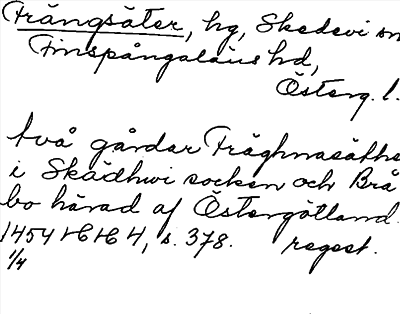 Frängsäter, hg, Skedevi sn
Finspångaläns hd,
Österg. l.
två gårdar Fräghnasäthe
i Skädhwi socken och Brå
bo härad af Östergötland.
1454 HH 4, s. 378. regest.
1/4